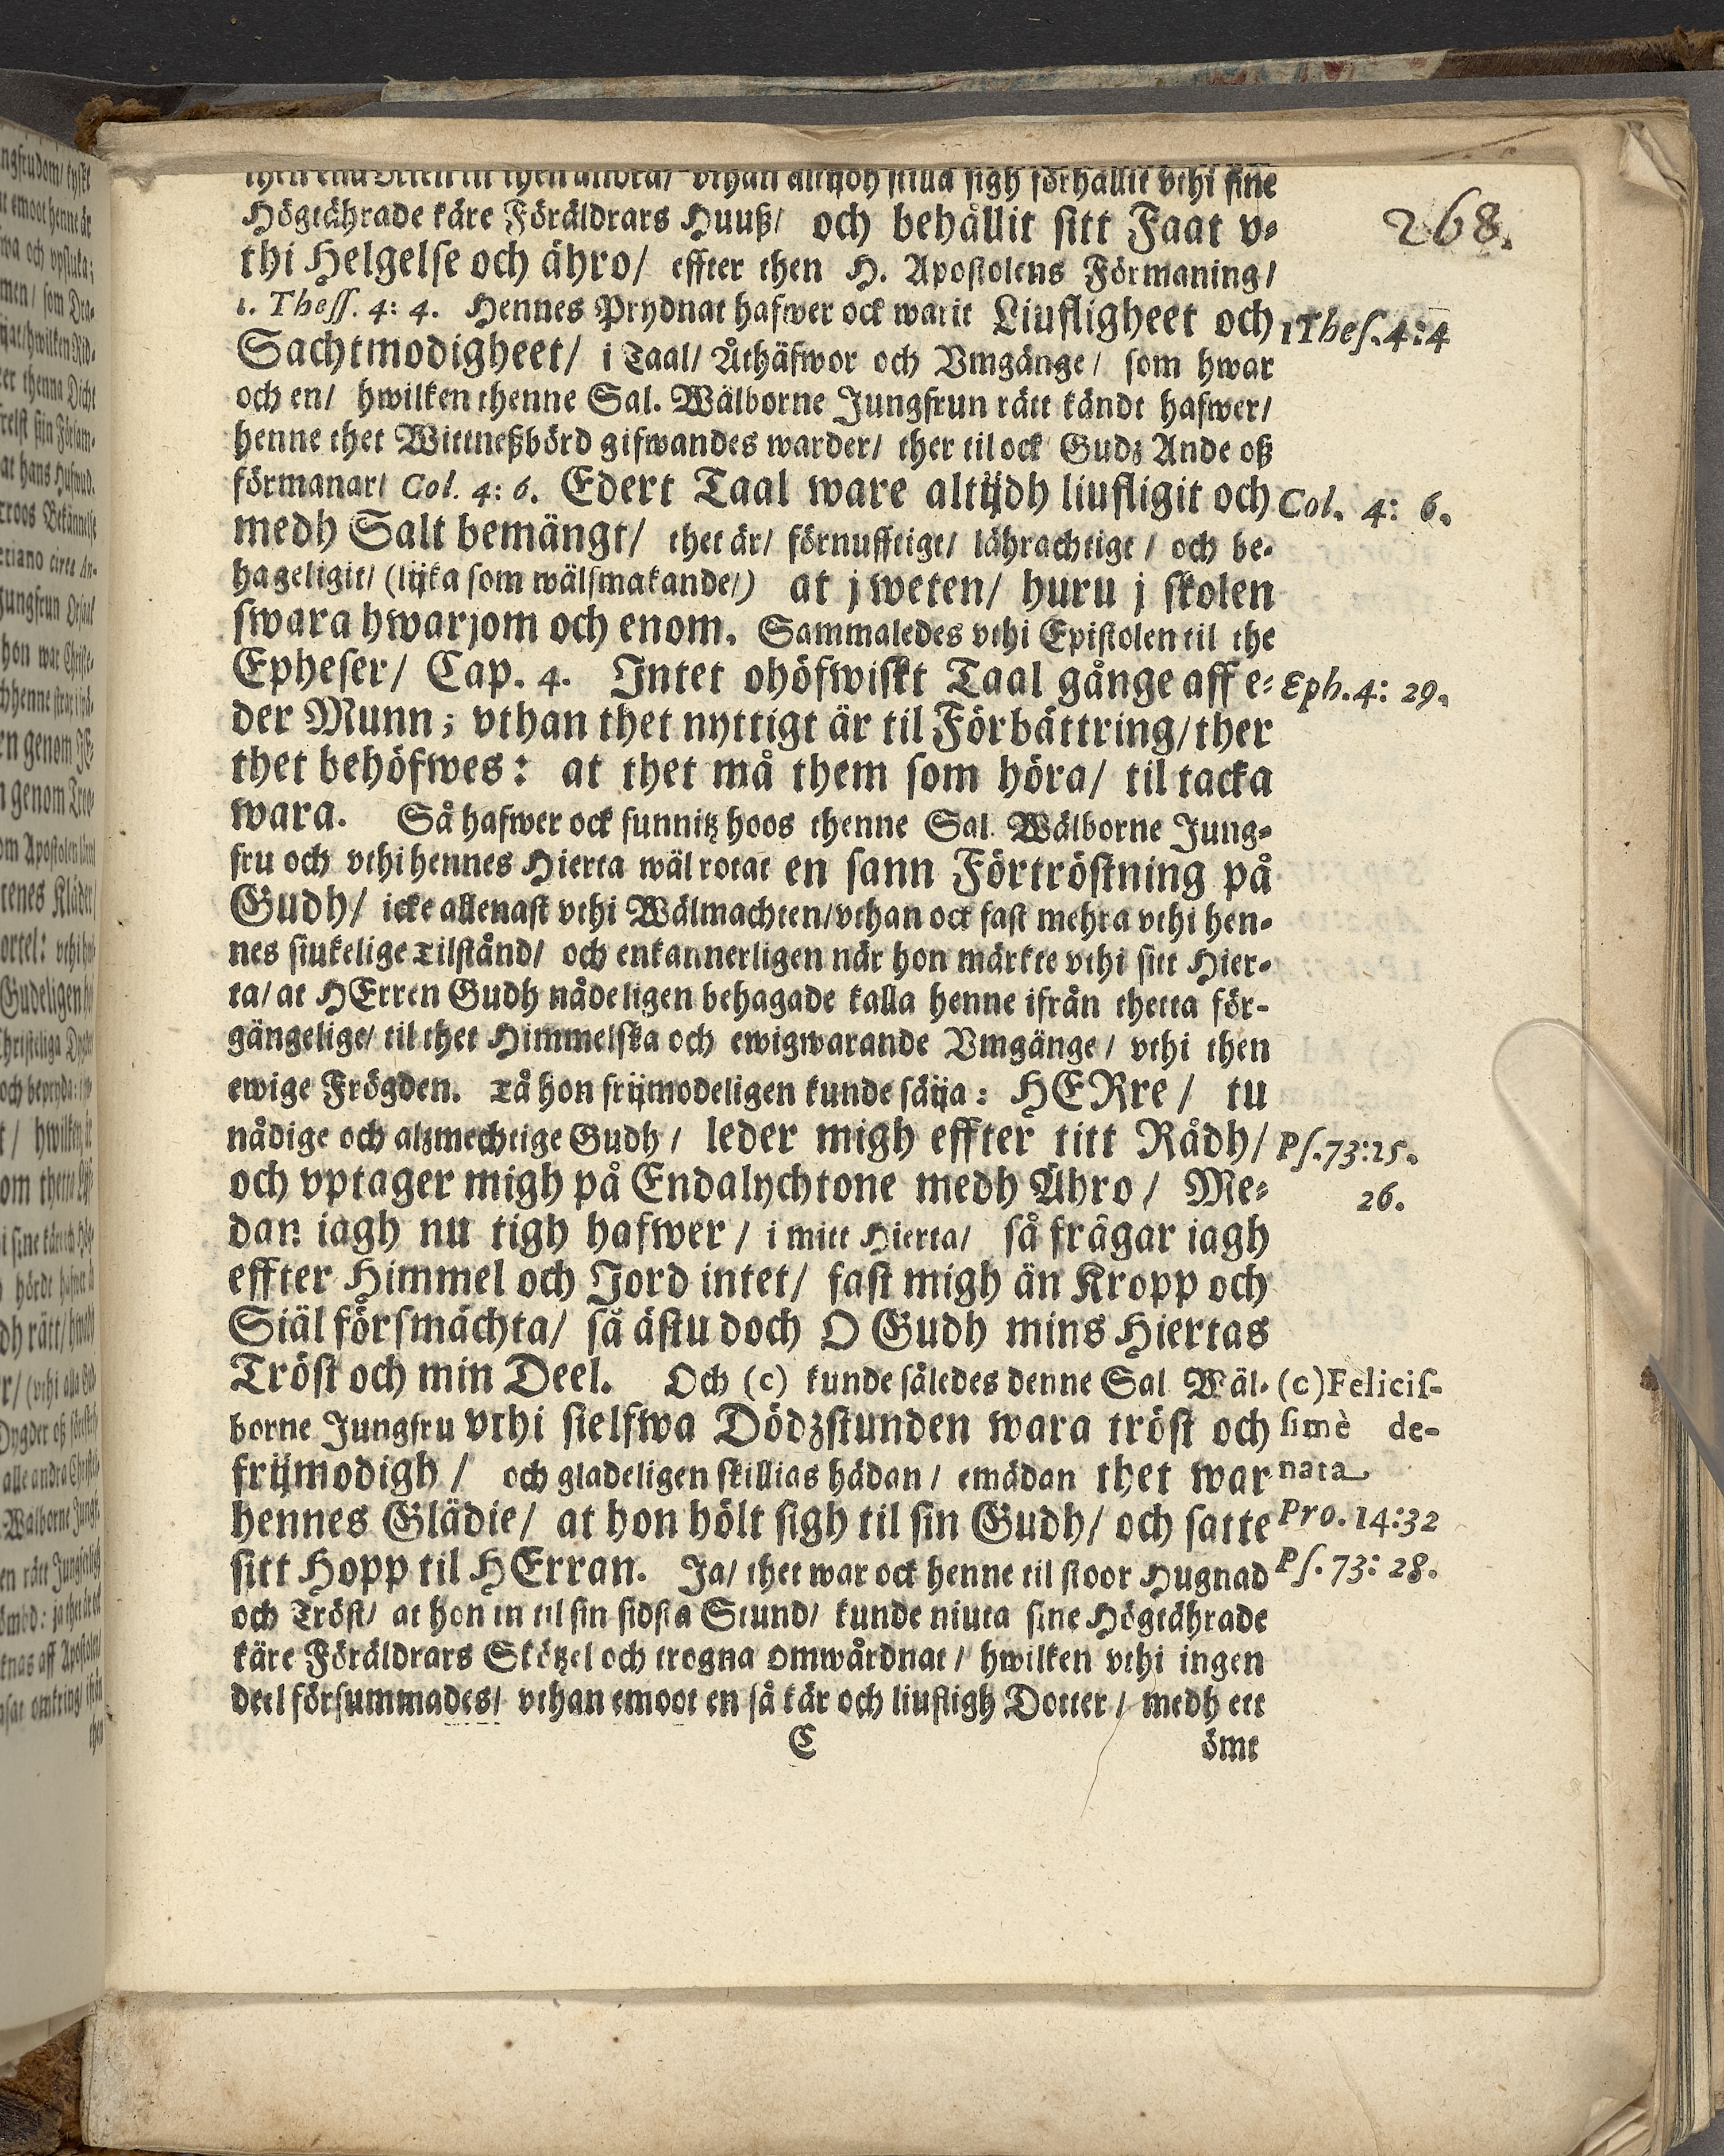 then ena Orten in then andra/ vthan altijdh stilla sigh förhållit vthi sine
Högtährade käre Föräldrars Huuß/ och behållit sitt Faat v-
268.
thi Helgelse och ähro/ effter then H. Apostolens Förmaning/
1. Thess. 4: 4. Hennes Prydnat hafwer ock warit Liufligheet och
1Thes. 4:4
Sachtmodigheet/ i Taal/ Åthäfwor och Vmgänge/ som hwar
och en/ hwilken thenne Sal. Wälborne Jungfrun rätt kändt hafwer/
henne thet Wittneßbörd gifwandes warder/ ther til ock Gudz Ande oß
förmanar/ Col. 4: 6. Edert Taal ware altijdh liufligit och
Col. 4: 6.
medh Salt bemängt/ thet är/ förnufftigt/ lährachtigt/ och be-
hageligit/ (lijka som wälsmakande/) at j weten/ huru j skolen
swara hwarjom och enom. Sammaledes vthi Epistolen til the
Epheser/ Cap. 4. Intet ohöfwiskt Taal gånge aff e-
Eph. 4: 29.
der Munn; vthan thet nyttigt är til Förbättring/ ther
thet behöfwes: at thet må them som höra/ til tacka
wara. Så hafwer ock funnitz hoos thenne Sal. Wälborne Jung-
fru och vthi hennes Hierta wäl rotat en sann Förtröstning på
Gudh/ icke allenast vthi Wälmachten/ vthan ock fast mehra vthi hen-
nes siukelige Tilstånd/ och enkannerligen när hon märkte vthi sitt Hier-
ta/ at HErren Gudh nådeligen behagade kalla henne ifrån thetta för-
gängelige/ til thet Himmelska och ewigwarande Vmgänge/ vthi then
ewige Frögden. Tå hon frijmodeligen kunde säija: HERre/ tu
nådige och alzmechtige Gudh/ leder migh effter titt Rådh/
Ps. 73:25.
och vptager migh på Endalychtone medh Ähro/ Me-
26.
dan iagh nu tigh hafwer/ i mitt Hierta/ så frågar iagh
effter Himmel och Jord intet/ fast migh än Kropp och
Siäl försmächta/ så ästu doch O Gudh mins Hiertas
Tröst och min Deel. Och (c) kunde således denne Sal Wäl-
(c) Felicis-
borne Jungfru vthi sielfwa Dödzstunden wara tröst och
simè de-
frijmodigh/ och gladeligen skillias hädan/ emädan thet war
nata
hennes Glädie/ at hon hölt sigh til sin Gudh/ och satte
Pro. 14:32
sitt Hopp til HErran. Ja/ thet war ock henne til stoor Hugnad
Ps. 73: 28.
och Tröst/ at hon in til sin sidsta Stund/ kunde niuta sine Högtährade
käre Föräldrars Skötzel och trogna Omwårdnat/ hwilken vthi ingen
deel försummades/ vthan emoot en så kär och liufligh Dotter/ medh ett
C
ömt